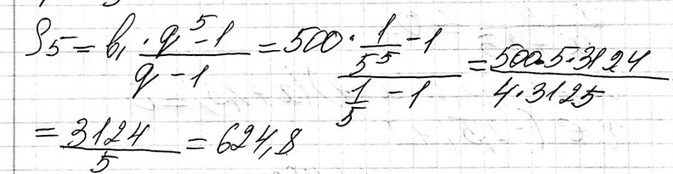 S₅ = b₁ · (q⁵ - 1)/(q - 1) = 500 · (1/5⁵ - 1)/(1/5 - 1) = (500 · 5 · 3124)/(4 · 3125)
= 3124/5 = 624,8